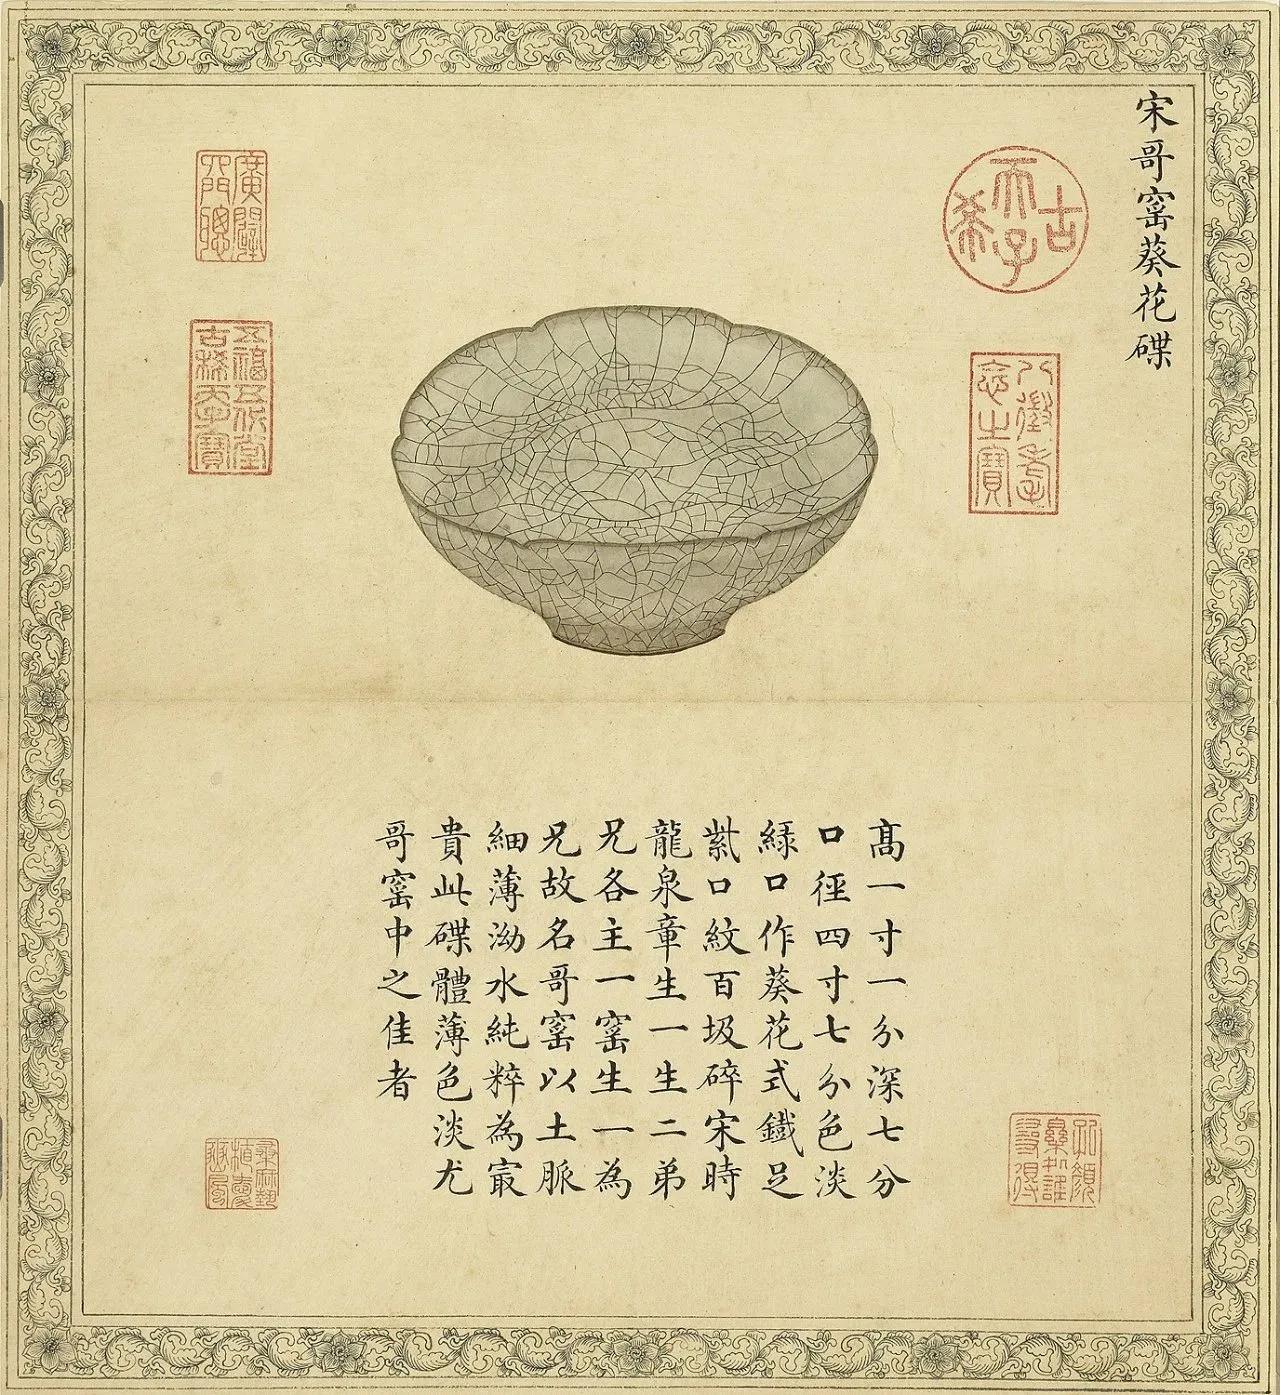 宋哥窰葵花碟
古希天子
八徵耄念之寶
五福五代堂
古稀天子寶
髙一寸一分深七分
口徑四寸七分色淡
緑口作葵花式鐵足
紫口紋百圾碎宋時
龍泉章生一生二弟
兄各主一窰生一為
兄故名哥窰以土脈
細薄泑水純粹為㝡
貴此碟體薄色淡尤
哥窰中之佳者
孔顔
樂處誰
尋得